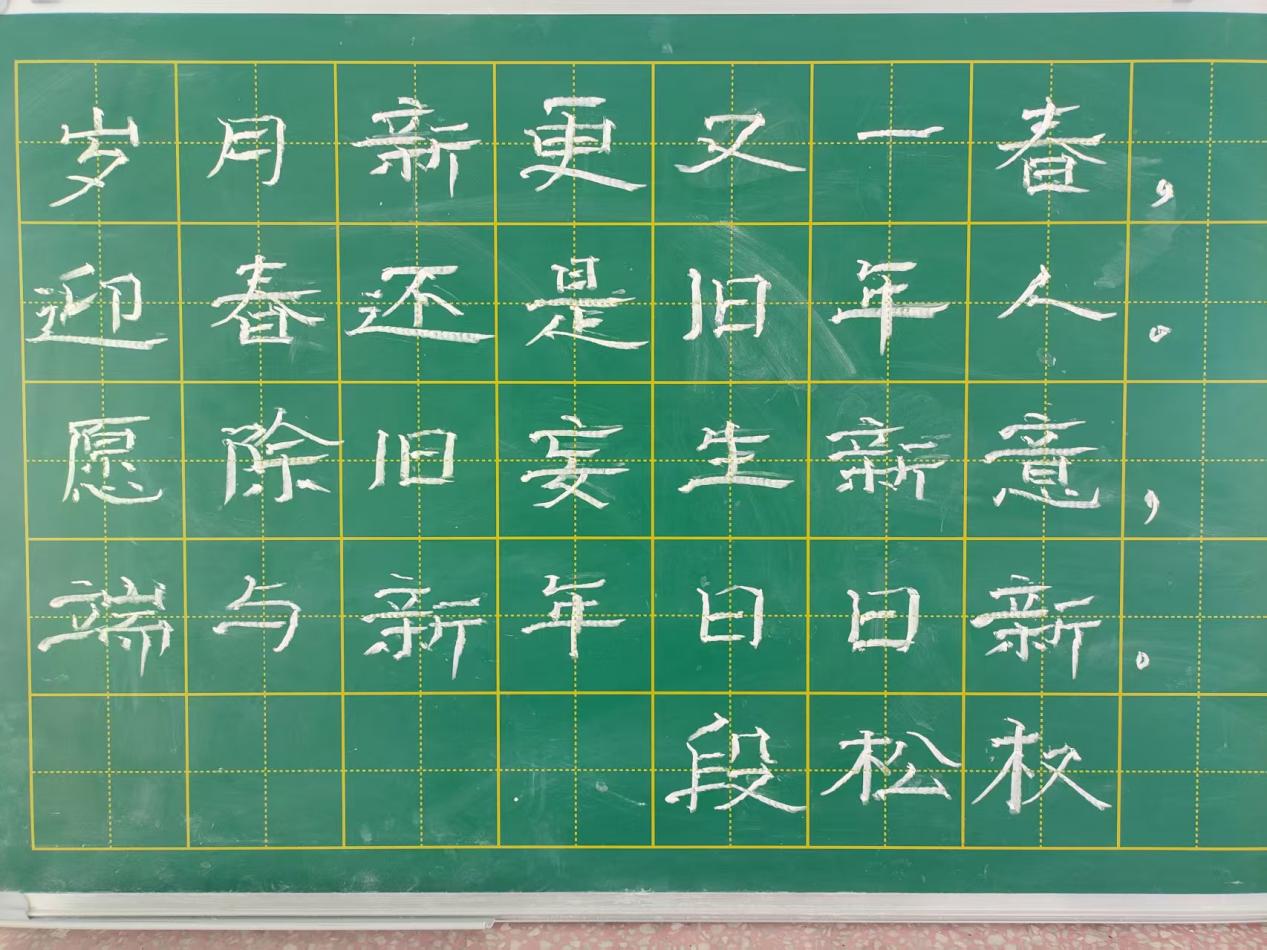 岁月新更又一春，
迎春还是旧年人。
愿除旧妄生新意，
端与新年日日新。
段松权